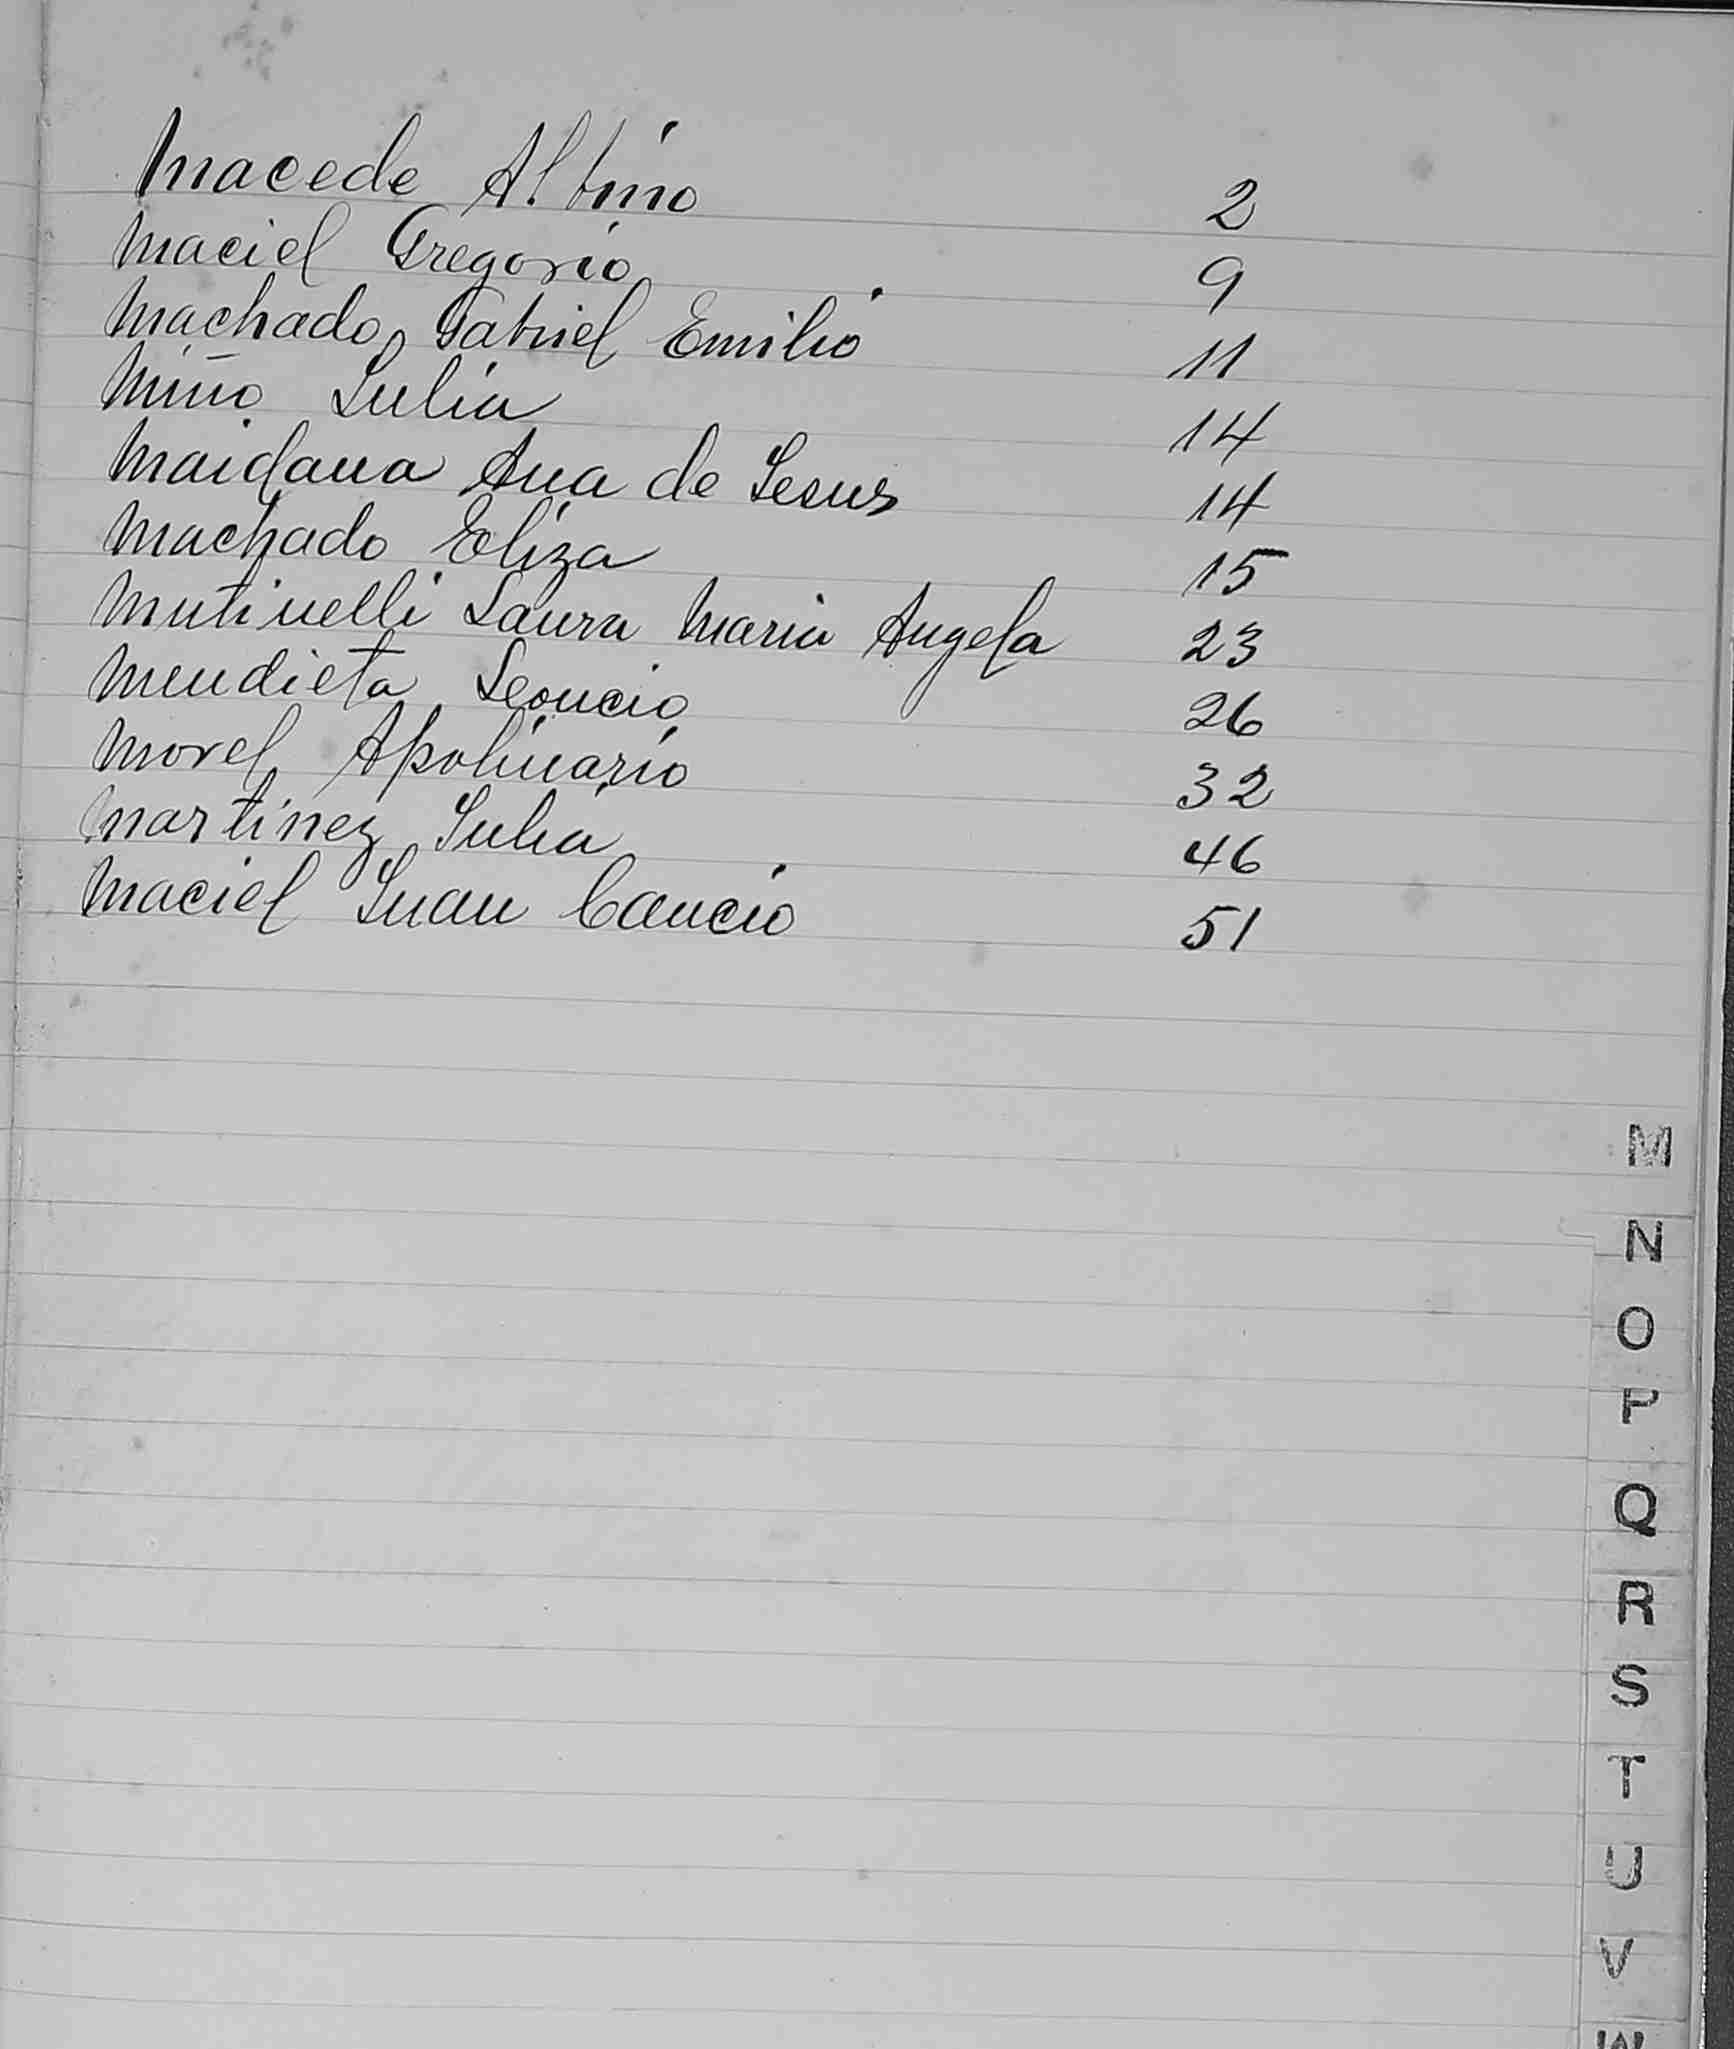 Macede Albino 2
Maciel Gregorio 9
Machado Gabriel Emilio 11
Miño Julia 14
Maidana Ana de Jesus 14
Machado Eliza 15
Mutinelli Laura Maria Angela 23
Mendieta Leoncio 26
Morel Apolinario 32
Martinez Julia 46
Maciel Juan Cancio 51
M
N
O
P
Q
R
S
T
U
V
W